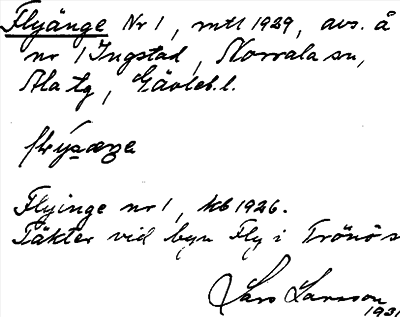 Flyänge Nr 1, mtl 1929, avs. å
nr 1 Ingstad, Norrala sn,
Ala tg, Gävleb. l.
Flyinge nr 1, kb 1926.
Täkter vid byn Fly i Trönö s
Lars Larsson
1931